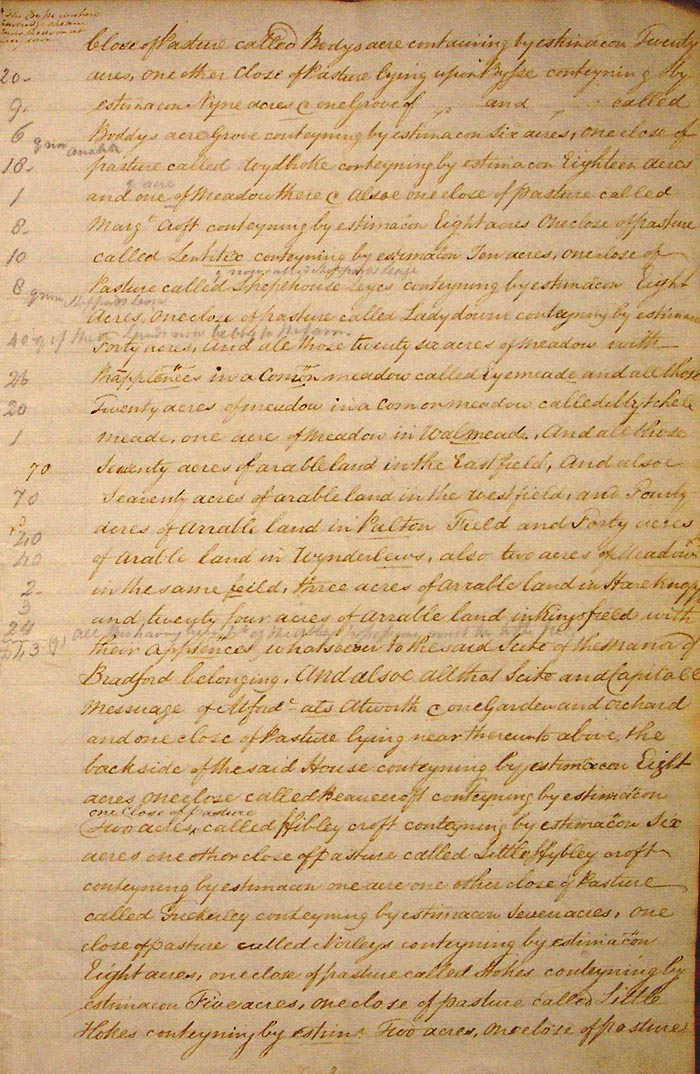 Close of Pasture called Bodys acre containing by estimacon Twenty
20 acres, one other Close of Pasture lying upon Bysse conteyning by
9 estimacon Nyne acres & one Grove of " and " called
6 Boddys acre Grove conteyning by estimacon Six acres, one close of
18 pasture called Wydbroke conteyning by estimacon Eighteen acres
1 and one of Meadow there & alsoe one close of Pasture called
8 Marg Croft conteyning by estimacon Eight acres One close of pasture
10 called conteyning by estimacon Ten acres, one close of
8 Pasture called Shepehouse Leyes conteyning by estimacon Eight
Acres, one close of pasture called Ladydowne conteyning by estimacon
40 Forty acres, And all those twenty six acres of meadow with
26 thapptenñces in a Comõn meadow called Eyemeade and all those
20 Twenty acres of meadow in a Common meadow called Mytchell
1 meade, one acre of Meadow in Walmeade, And all those
70 Seaventy acres of arable land in the Eastfield, And alsoe
70 Seaventy acres of arable land in the westfield, and Fourty
40 acres of Arrable land in Pulton Field and Forty acres
40 of arable land in Wynderlews, also two acres of Meadow
2 in the same feild, three acres of arrable land in Hare Knapp
3 and twenty four acres of Arrable land in Kingsfield with
24 their Apptences whatsoever to the said Scite of the Manor of
Bradford belonging, And alsoe all that Scite and Capitall
Messuage of Alford als Atworth & one Garden and orchard
and one close of Pasture lying near thereunto above the
backside of the said House conteyning by estimacon Eight
acres one close called Beaucroft conteyning by estimacon
one Close of pasture
Two acres, called Hibley croft conteyning by estimacon Six
acres one other close of pasture called Little Hybley croft
conteyning by estimacon one acre one other close of Pasture
called Tuckerley conteyning by estimacon Seven acres, one
close of pasture called Norleys conteyning by estimacon
Eight acres, one close of pasture called Stokes conteyning by
estimacon Five acres, one close of pasture called Little
Hokes conteyning by estim. Two acres, one close of pasture